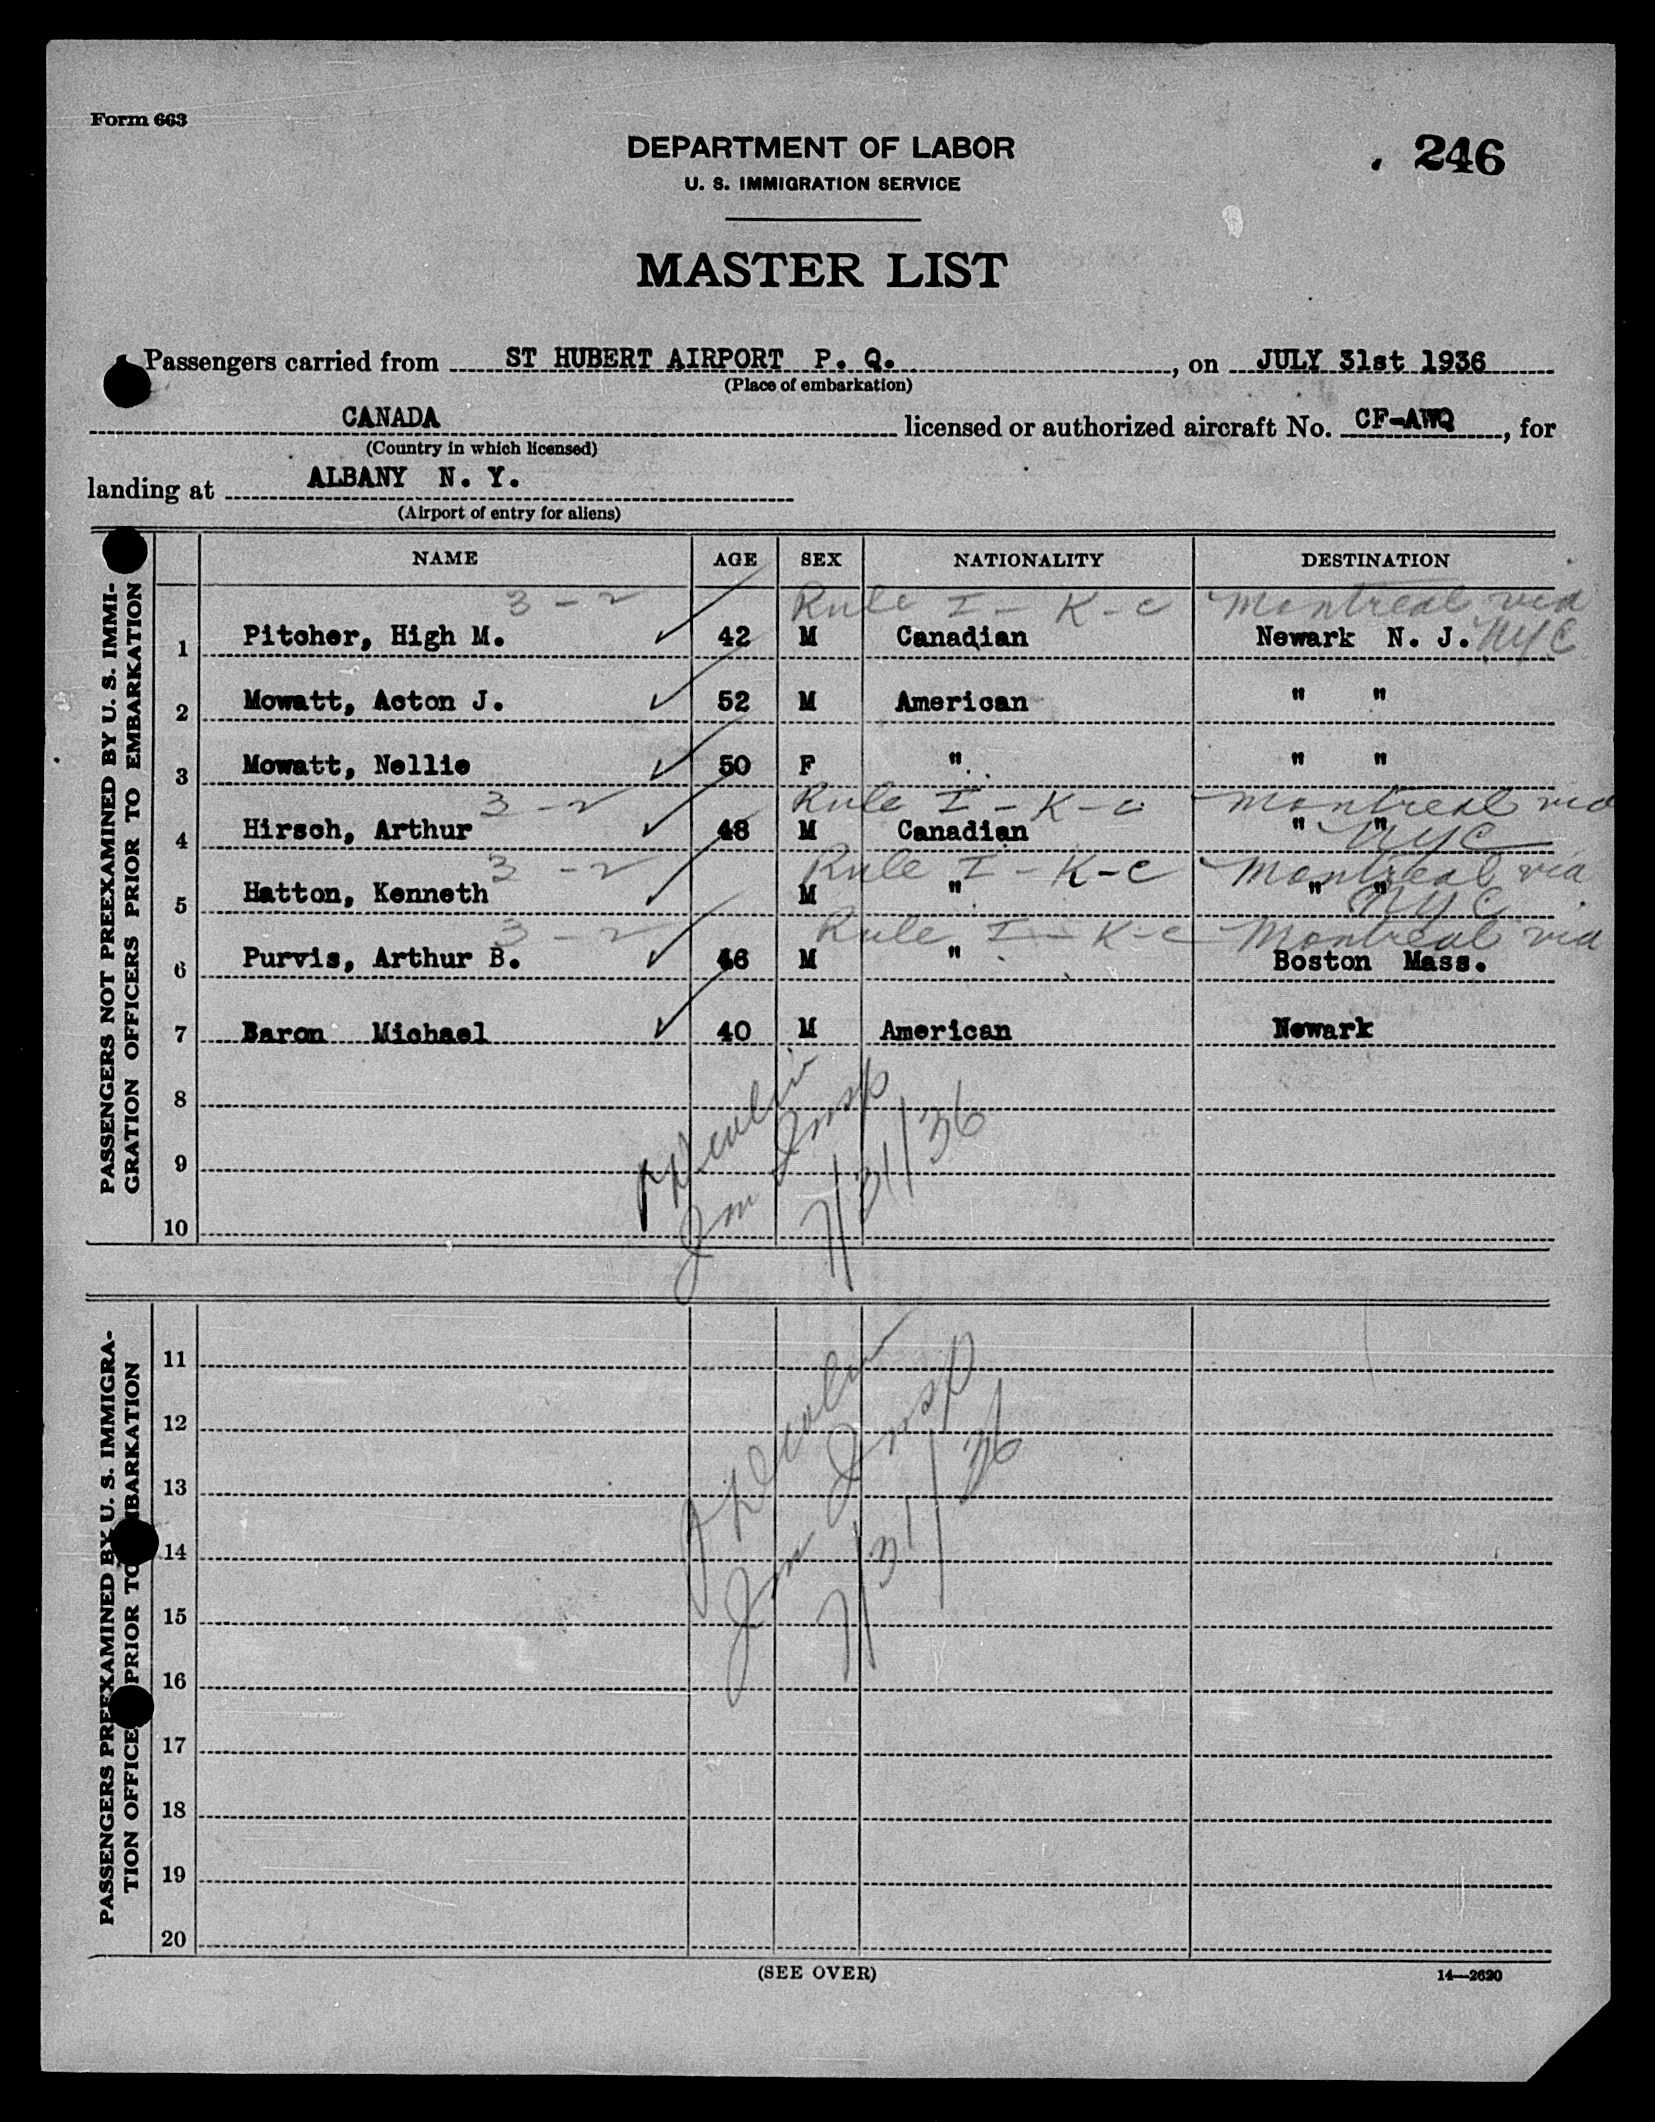 Form 663
DEPARTMENT OF LABOR
U. S. IMMIGRATION SERVICE
246
MASTER LIST
Passengers carried from ST HUBERT AIRPORT P. Q. , on JULY 31st 1936
(Place of embarkation)
CANADA licensed or authorized aircraft No. CF-AWQ , for
(Country in which licensed)
landing at ALBANY N. Y.
(Airport of entry for aliens)
NAME AGE SEX NATIONALITY DESTINATION
PASSENGERS NOT PREEXAMINED BY U. S. IMMI-
GRATION OFFICERS PRIOR TO EMBARKATION
3-2 Rule I-K-c Montreal via
1 Pitcher, High M. 42 M Canadian Newark N. J. NYC
2 Mowatt, Acton J. 52 M American " "
3 Mowatt, Nellie 50 F " " "
3-2 Rule I-K-c Montreal via
4 Hirsch, Arthur 48 M Canadian " " NYC
3-2 Rule I-K-c Montreal via
5 Hatton, Kenneth M " " " NYC
3-2 Rule I-K-c Montreal via
6 Purvis, Arthur B. 46 M " Boston Mass.
7 Baron Michael 40 M American Newark
8
9
10
Imm Insp
7/31/36
PASSENGERS PREEXAMINED BY U. S. IMMIGRA-
TION OFFICE PRIOR TO MBARKATION
11
12
13
14
15
16
17
18
19
20
Imm Insp
7/31/36
(SEE OVER)
14—2620